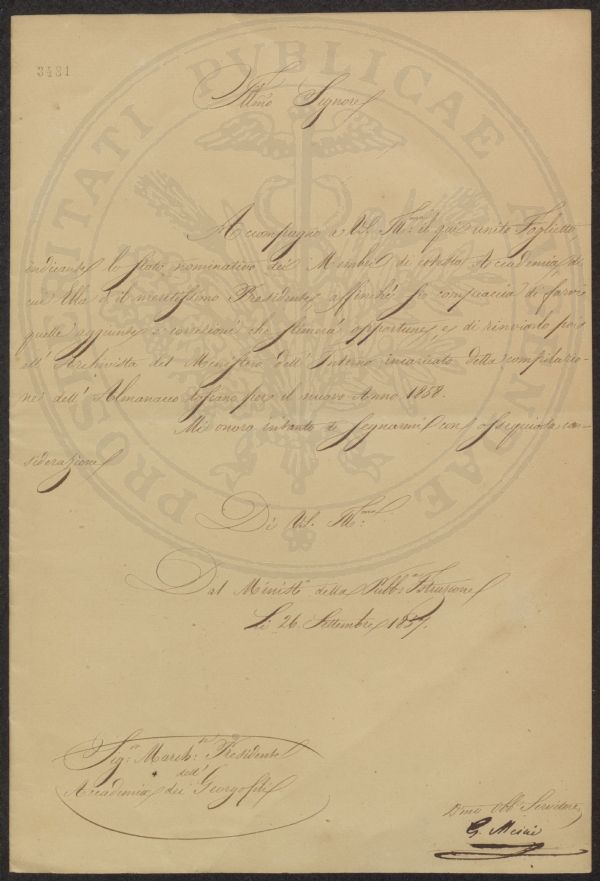 PROSPERITATI PUBLICAE AUGENDAE
3481
Illmo Signore
Accompagno a V.S. Illma il qui unito Foglietto
indicante lo stato nominativo dei Membri di cotesta Accademia di
cui Ella è il meritissimo Presidente affinchè si compiaccia di farvi
quelle aggiunte e correzioni che stimerà opportune, e di rinviarlo poi
all' Archivista del Ministero dell' Interno incaricato della compilazio-
ne dell' Almanacco Toscano per il nuovo Anno 1858.
Mi onoro intanto di segnarmi con ossequiosa con-
siderazione
Di V.S. Illma
Dal Ministo della Pubba Istruzione
Li 26. Settembre 1857.
Sigre Marche Presidente
dell'
Accademia dei Georgofili
Dmo Obb Servitore